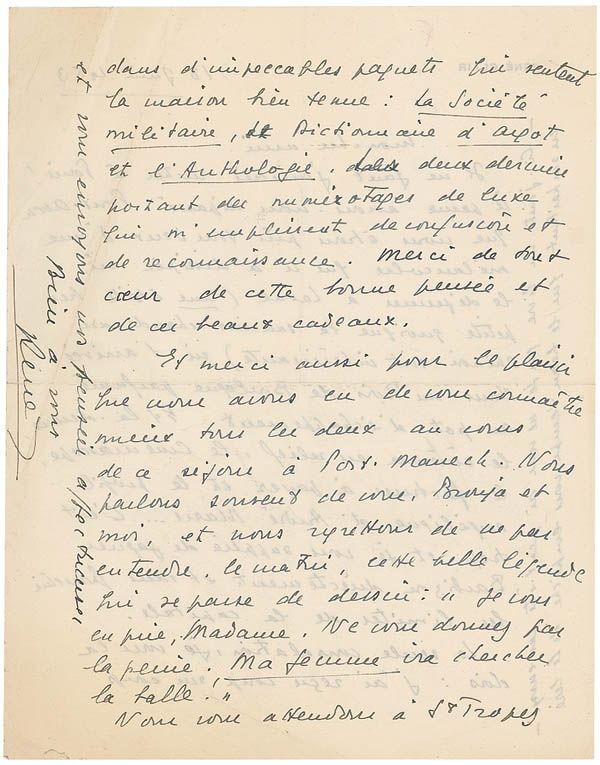 dans d'impeccables paquets qui sentent
la maison bien tenue : La Société
militaire, le Dictionnaire d'Argot
et l'Anthologie. deux derniers
portant des numérotages de luxe
qui m'emplissent de confusion et
de reconnaissance. Merci de tout
cœur de cette bonne pensée et
de ces beaux cadeaux.
Et merci aussi pour le plaisir
que nous avons eu de vous connaître
mieux tous les deux au cours
de ce séjour à Port-Manech. Nous
parlons souvent de vous, Bronja et
moi, et nous regrettons de ne pas
entendre, le matin, cette belle légende
qui se passe de dessin : " Je vous
en prie, Madame. Ne vous donnez pas
la peine. Ma femme ira chercher
la balle. "
Nous vous attendons à St Tropez
et vous envoyons nos pensées affectueuses
Bien à vous
René